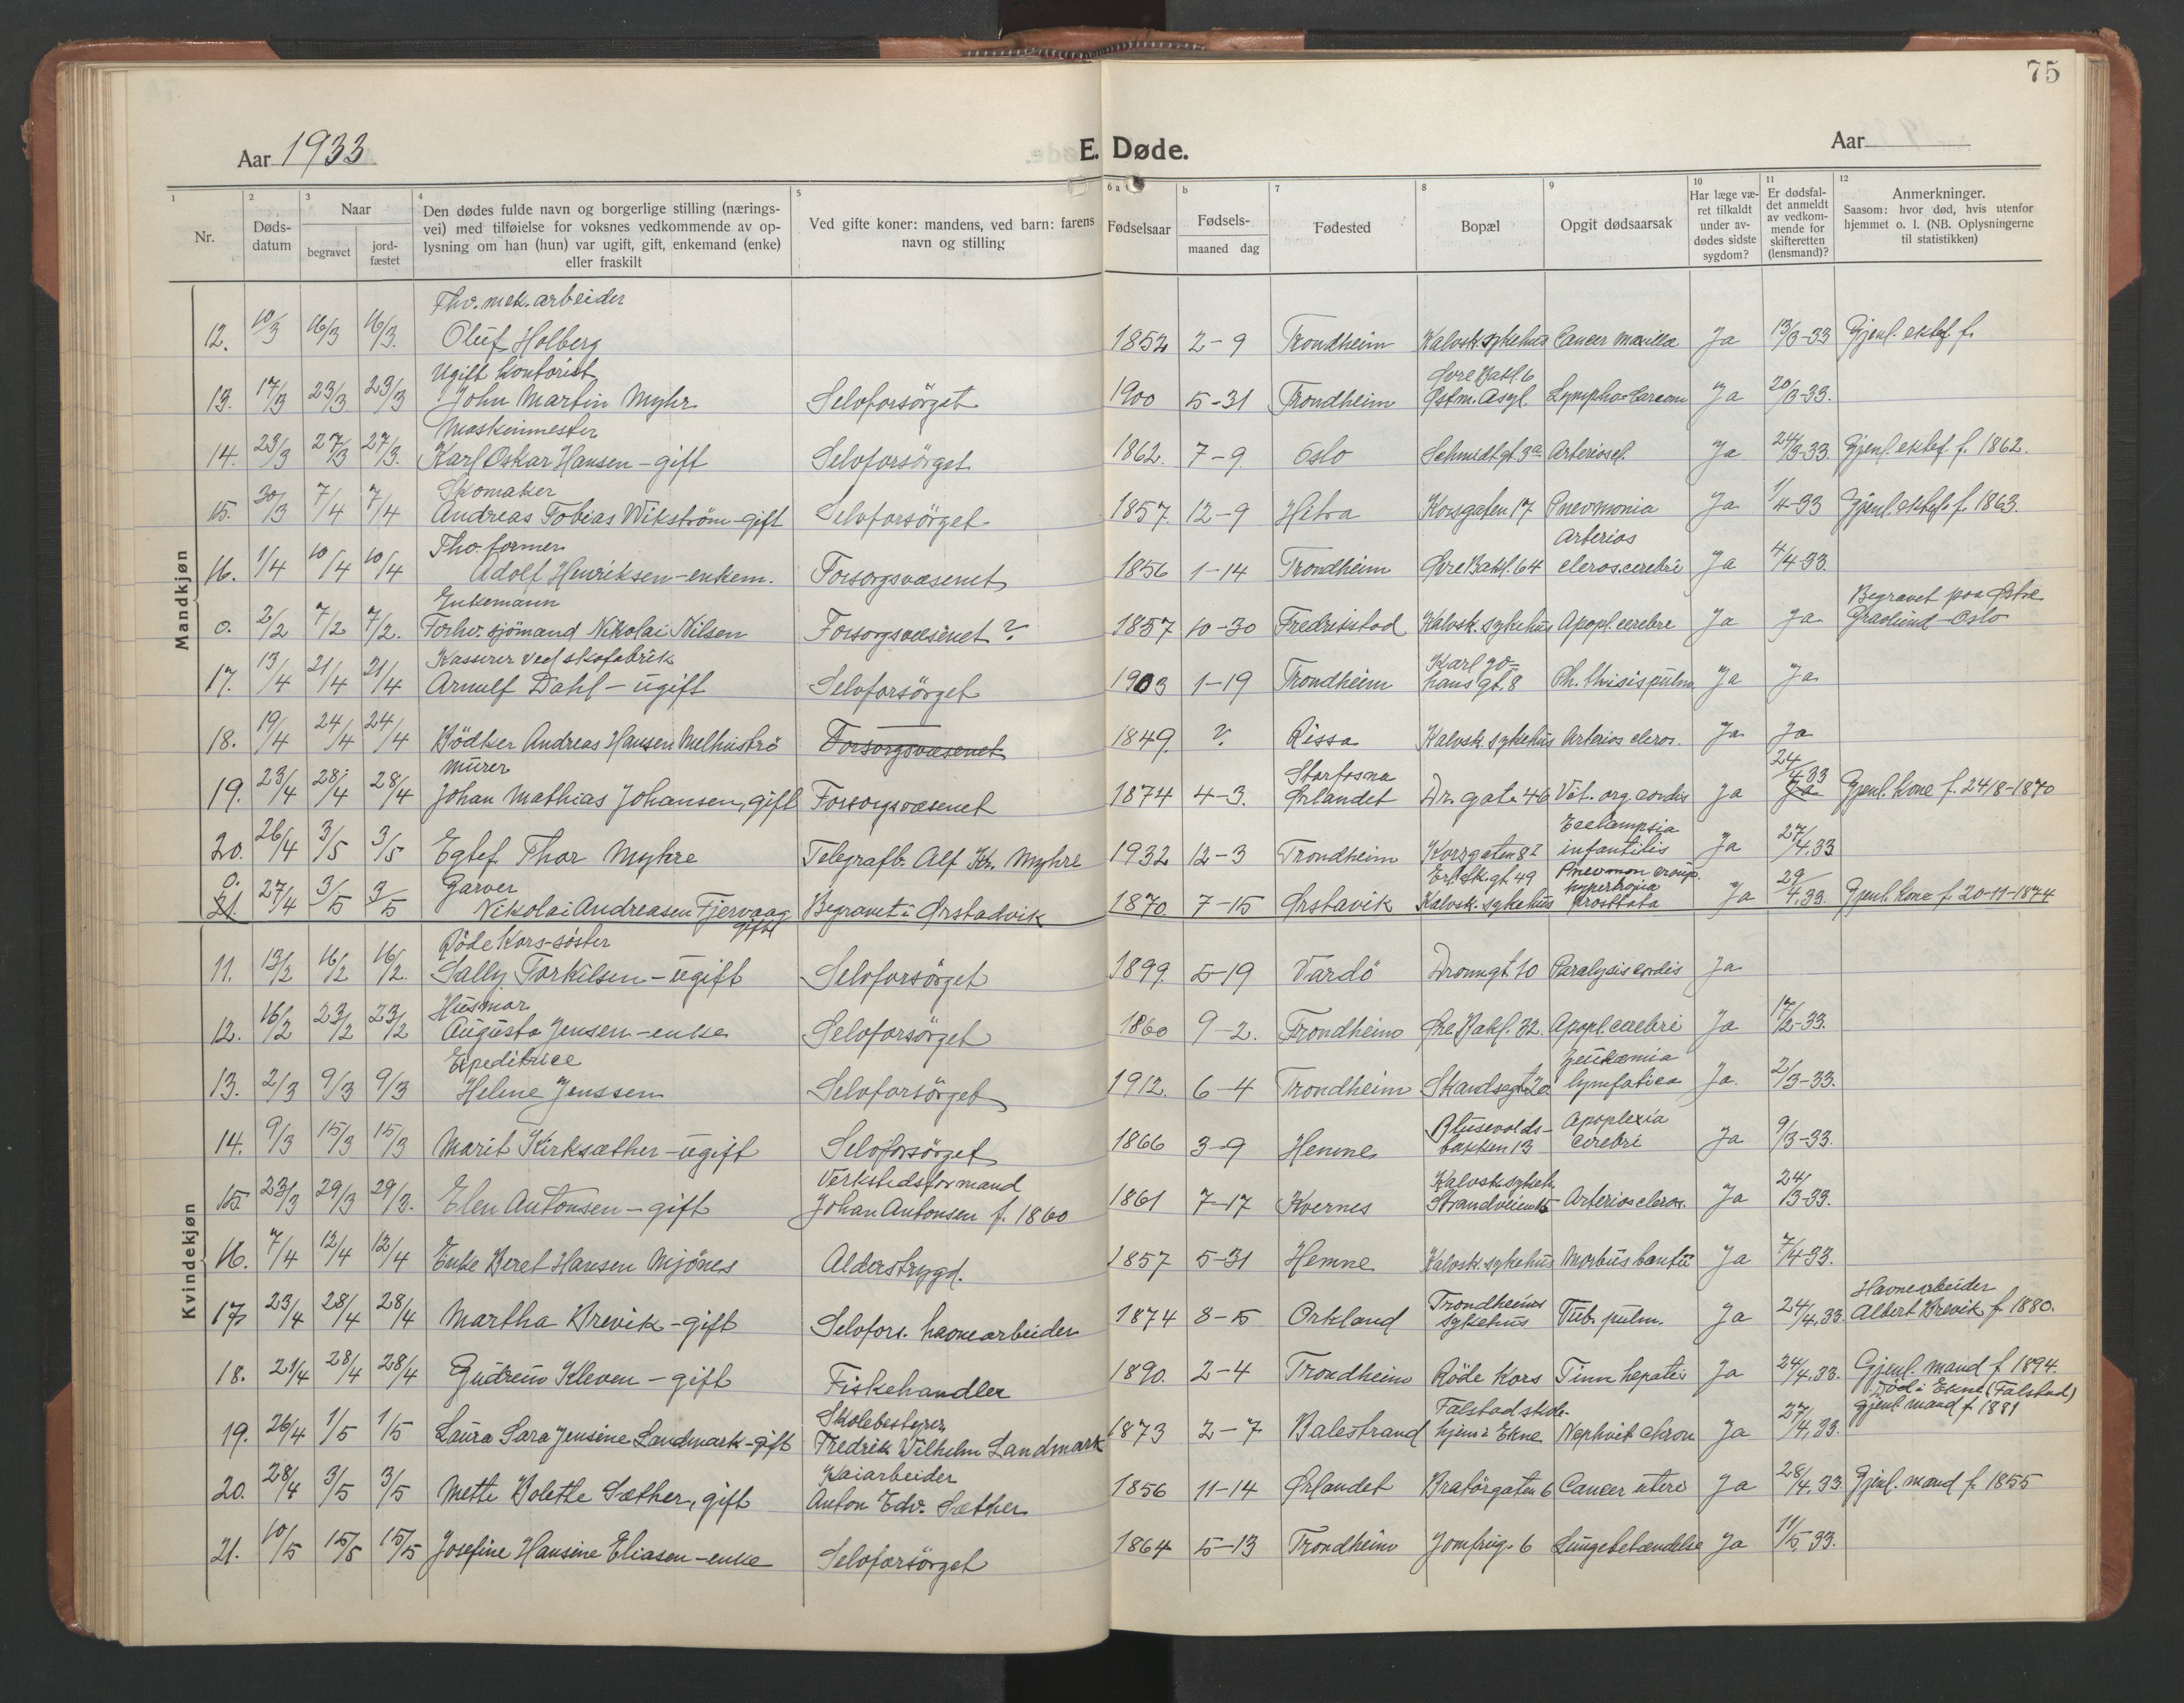 75
Aar 1933
E. Døde.
Aar
1 2 3 4 5 6 a b 7 8 9 10 11 12
Nr.
Døds-
datum
Naar
begravet
jord-
fæstet
Den dødes fulde navn og borgerlige stilling (nærings-
vei) med tilføielse for voksnes vedkommende av op-
lysning om han (hun) var ugift, gift, enkemand (enke)
eller fraskilt
Ved gifte koner: mandens, ved barn: farens
navn og stilling
Fødselsaar
Fødsels-
maaned dag
Fødested
Bopæl
Opgit dødsaarsak
Har læge væ-
ret tilkaldt
under av-
dødes sidste
sygdom?
Er dødsfal-
det anmeldt
av vedkom-
mende for
skifteretten
(lensmand)?
Anmerkninger.
Saasom: hvor død, hvis utenfor
hjemmet o. l. (NB. Oplysningerne
til statistikken)
Mandkjøn
Fhv. mek. arbeider
12. 10/3 16/3 16/3. Oluf Holberg 1852 2-9 Trondheim Kalvsk. sykehus Cancer maxilla Ja 13/3-33 Gjenl. ektef. f.
Ugift kontorist Øvre Bakl. 6
13. 17/3 23/3 23/3 John Martin Myhr Selvforsörget 1900 5-31 Trondheim Østm. Asyl. Lympho-Sarcom Ja 20/3-33.
Maskinmester
14. 23/3 27/3 27/3. Karl Oskar Hansen - gift Selvforsörget 1862. 7-9 Oslo Schmidtgt. 3a Arterioscl. Ja 24/3-33. Gjenl. ektef. f. 1862.
Skomaker
15. 30/3 7/4 7/4 Andreas Tobias Wikström - gift Selvforsörget 1857 12-9 Hitra Korsgaten 17 Pnevmonia Ja 1/4-33 Gjenl. ektef. f. 1863.
Fhv. former Arterios
16. 1/4 10/4 10/4 Adolf Henriksen - enkem. Forsorgsvæsenet 1856 1-14 Trondheim Øvre Bakl. 64 cleros. cerebri Ja 4/4-33.
Enkemann Begravet paa Østre
0. 2/2 7/2 7/2. Forhv. sjömand Nikolai Nilsen Forsorgsvæsenet? 1857 10-30 Fredrikstad Kalvsk. sykehus Apopl. cerebre Ja Ja Gravlund - Oslo
Kasserer ved skofabrik Karl Jo-
17. 13/4 21/4 21/4 Arnulf Dahl - ugift Selvforsörget 1903 1-19 Trondheim hans gt. 8 Ph. thisis pulm Ja Ja
18. 19/4 24/4 24/4 Bödker Andreas Hansen Melhuströ Forsorgsvæsenet 1849. ?. Rissa Kalvsk. sykehus Arterios cleros. Ja Ja
Murer Storfosna 24/4 33
19. 23/4 28/4 28/4 Johan Mathias Johansen, gift Forsorgsvæsenet 1874 4-3. Ørlandet Dr. gate 46 Vit. org. cordis Ja Ja Gjenl. kone f. 24/8-1870
Eeclampsia
20. 26/4 3/5 3/5 Egtef. Thor Myhre Telegrafb. Alf Kr. Myhre 1932 12-3 Trondheim Korsgaten 8 I infantilis Ja 27/4. 33
0. Garver Erl. Sk. gt. 49 Pnevmon croup.
hypertrofia
21. 27/4 3/5 3/5 Nikolai Andreasen Fjervaag gift Begravet i Ørstadvik 1870 7-15 Ørstavik Kalvsk. sykehus prosttata Ja 29/4. 33 Gjenl. kone f. 20-11-1874
Kvindekjøn
Röde Kors-söster
11. 13/2 16/2 16/2. Sally Torkilsen - ugift Selvforsörget 1899. 5-19 Vardö Dronngt. 10 Paralysis cordis Ja
Husmor
12. 16/2 23/2 23/2 Augusta Jensen - enke Selvforsörget 1860 9-2. Trondheim Øvre Bakl. 32. Apopl. cerebri Ja 17/2-33.
Expeditrice Leukæmia
13. 2/3 9/3 9/3 Helene Jenssen Selvforsörget 1912. 6-4 Trondheim Skandsegt. 20 lymfatica Ja. 2/3-33.
Blusevolds- Apoplexia
14. 9/3 15/3 15/3 Marit Kirksæther - ugift Selvforsörget 1866 3-9 Hemne bakken 13 cerebri Ja 9/3-33.
Verkstedsformand Kalvsk. sykeh.
15. 23/3 29/3 29/3. Elen Antonsen - gift Johan Antonsen f. 1860 1861 7-17 Kvernes Strandveien 15 Arterioscleros. Ja 24/3-33.
16. 7/4 12/4 12/4 Enke Beret Hansen Mjönes Alderstrygd. 1857 5-31 Hemne Kalvsk. sykehus Morbus bantii Ja 7/4-33.
Trondheims Havnearbeider
17. 23/4 28/4 28/4 Martha Brevik - gift Selvfors. havnearbeider 1874 8-5 Orkland sykehus Tub. pulm. Ja 24/4. 33. Albert Brevik f. 1880.
18. 21/4 28/4 28/4 Gudrun Kleven - gift Fiskehandler 1890. 2-4 Trondheim Röde Kors Tinn hepatis Ja 24/4. 33. Gjenl. mand f. 1894.
Skolebestyrer Falstad skole- Död i Ekne (Falstad)
19. 26/4 1/5 1/5 Laura Sara Jensine Landmark - gift Fredrik Vilhelm Landmark 1873 2-7 Balestrand hjem i Ekne Nephvit chron Ja 27/4. 33. gjenl. mand f. 1881
Kaiarbeider
20. 28/4 3/5 3/5 Mette Bolette Sæther, gift Anton Edv. Sæther 1856 11-14 Ørlandet Bratörgaten 6 Cancer uteri Ja 28/4. 33. Gjenl. mand f. 1855
21. 10/5 15/5 15/5 Josefine Hansine Eliasen - enke Selvforsörget 1864 5-13 Trondheim Jomfrug. 6 Lungebetændelse Ja 11/5. 33.